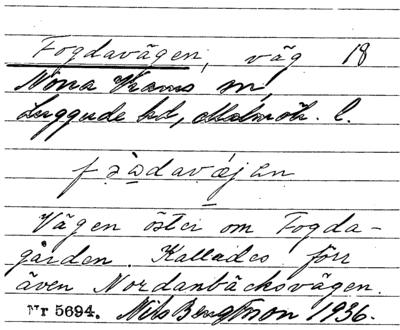 Fogdavägen, väg 18
Norra Vrams sn,
Luggude hd, Malmöh. l.
Vägen öster om Fogda-
gården. Kallades förr
även Nordanbäcksvägen.
Nr 5694. Nils Bengtsson 1936.